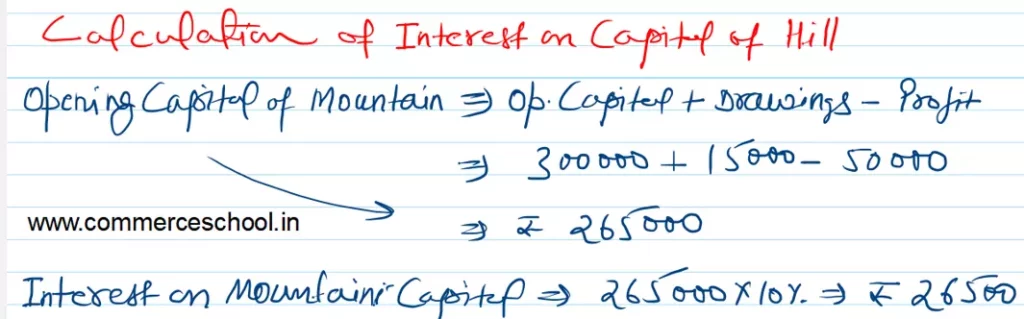 Calculation of Interest on Capital of Hill
Opening Capital of Mountain ⇒ Op. Capital + Drawings - Profit
⇒ 300000 + 15000 - 50000
www.commerceschool.in
⇒ ₹ 265000
Interest on Mountains Capital ⇒ 265000 X 10%. ⇒ ₹ 26500